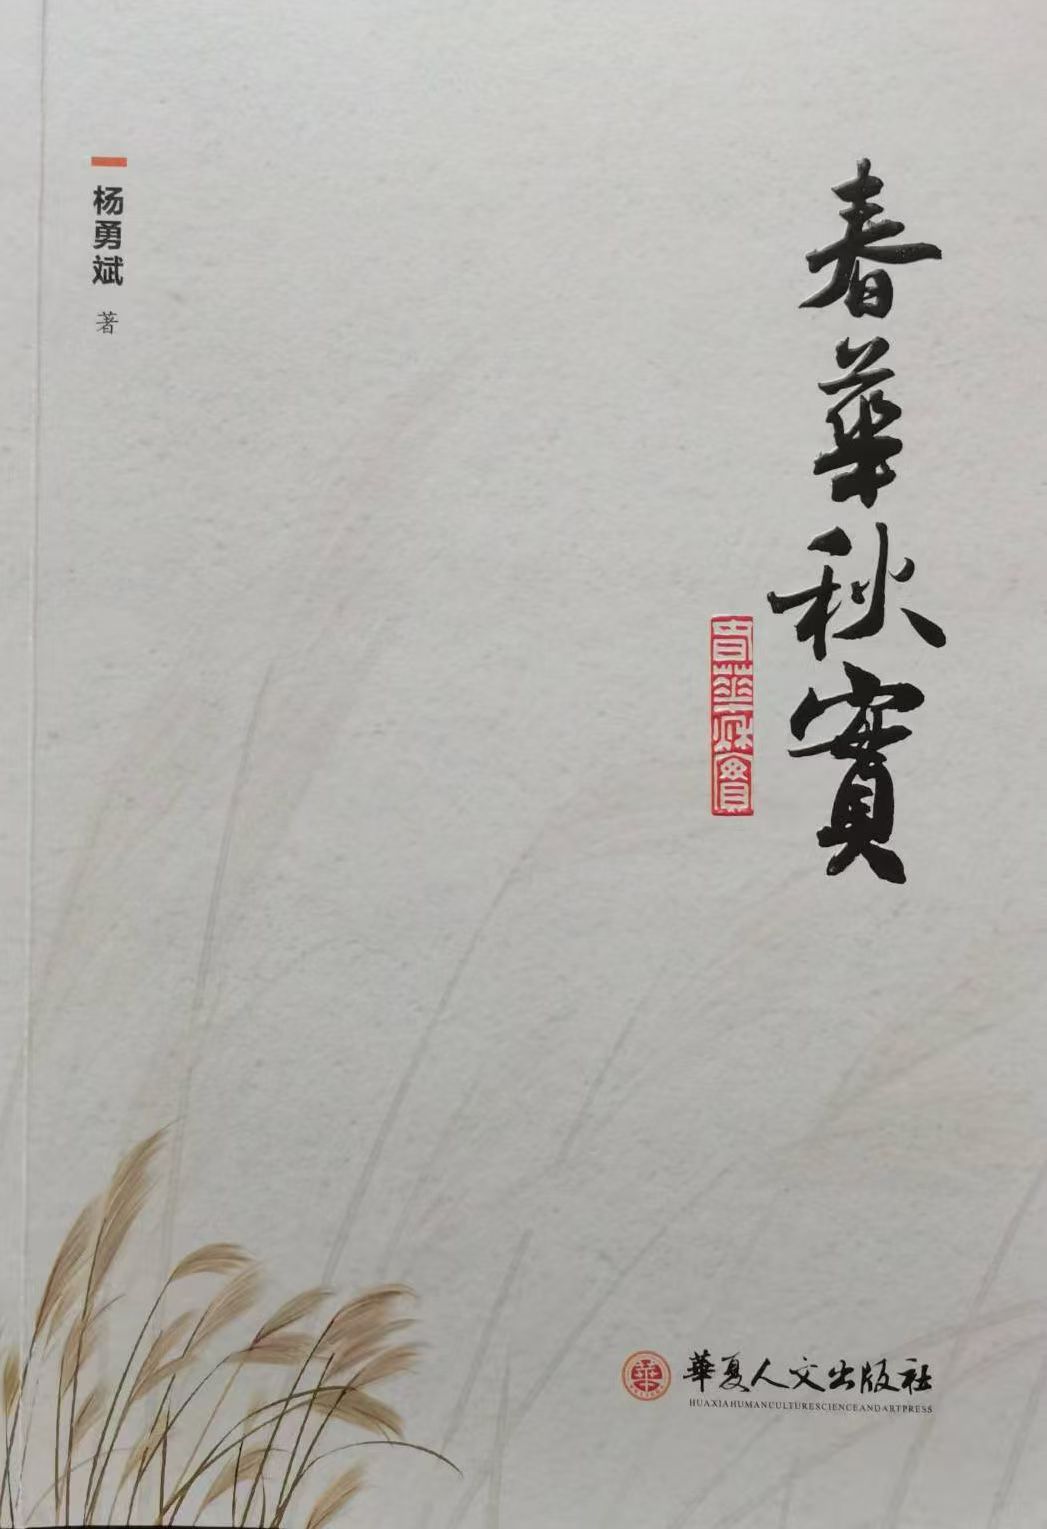 春華秋實
春華秋實
杨勇斌 著
華夏人文出版社
HUAXIAHUMANCULTURESCIENCEANDARTPRESS